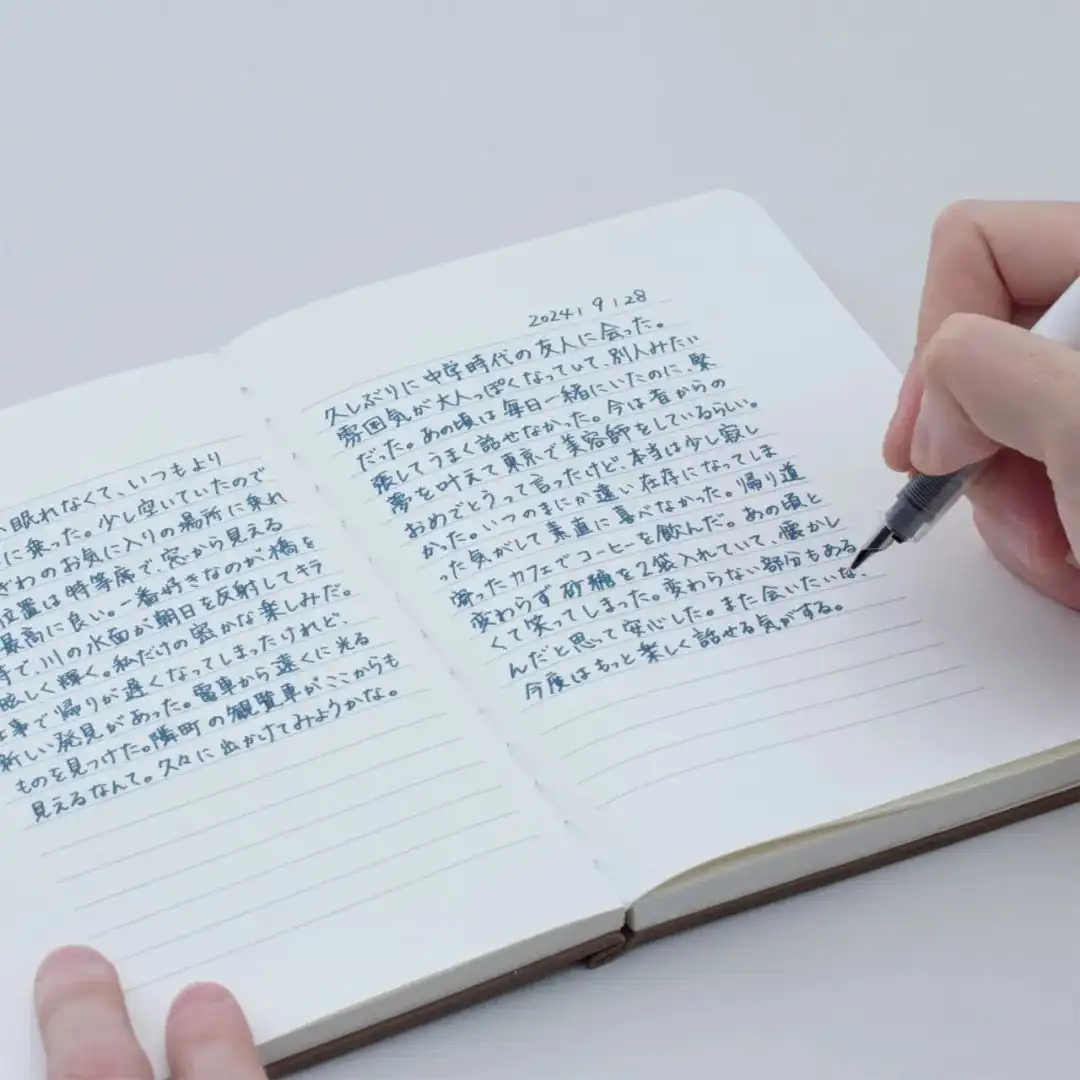 、眠れなくて、いつもより
に乗った。少し空いていたので
ぎわのお気に入りの場所に乗れ
位置は特等席で、窓から見える
最高に良い。一番好きなのが橋を
時で、川の水面が朝日を反射してキラ
眩しく輝く。私だけの密かな楽しみだ。
仕事で帰りが遅くなってしまったけれど、
新しい発見があった。電車から遠くに光る
ものを見つけた。隣町の観覧車がここからも
見えるなんて。久々に出かけてみようかな。
2024,9,28
久しぶりに中学時代の友人に会った。
雰囲気が大人っぽくなっていて、別人みたい
だった。あの頃は毎日一緒にいたのに、緊
張してうまく話せなかった。今は昔からの
夢を叶えて東京で美容師をしているらしい。
おめでとうって言ったけど、本当は少し寂し
かった。いつのまにか遠い存在になってしま
った気がして素直に喜べなかった。帰り道
寄ったカフェでコーヒーを飲んだ。あの頃と
変わらず砂糖を2袋入れていて、懐かし
くて笑ってしまった。変わらない部分もある
んだと思って安心した。また会いたいな、
今度はもっと楽しく話せる気がする。